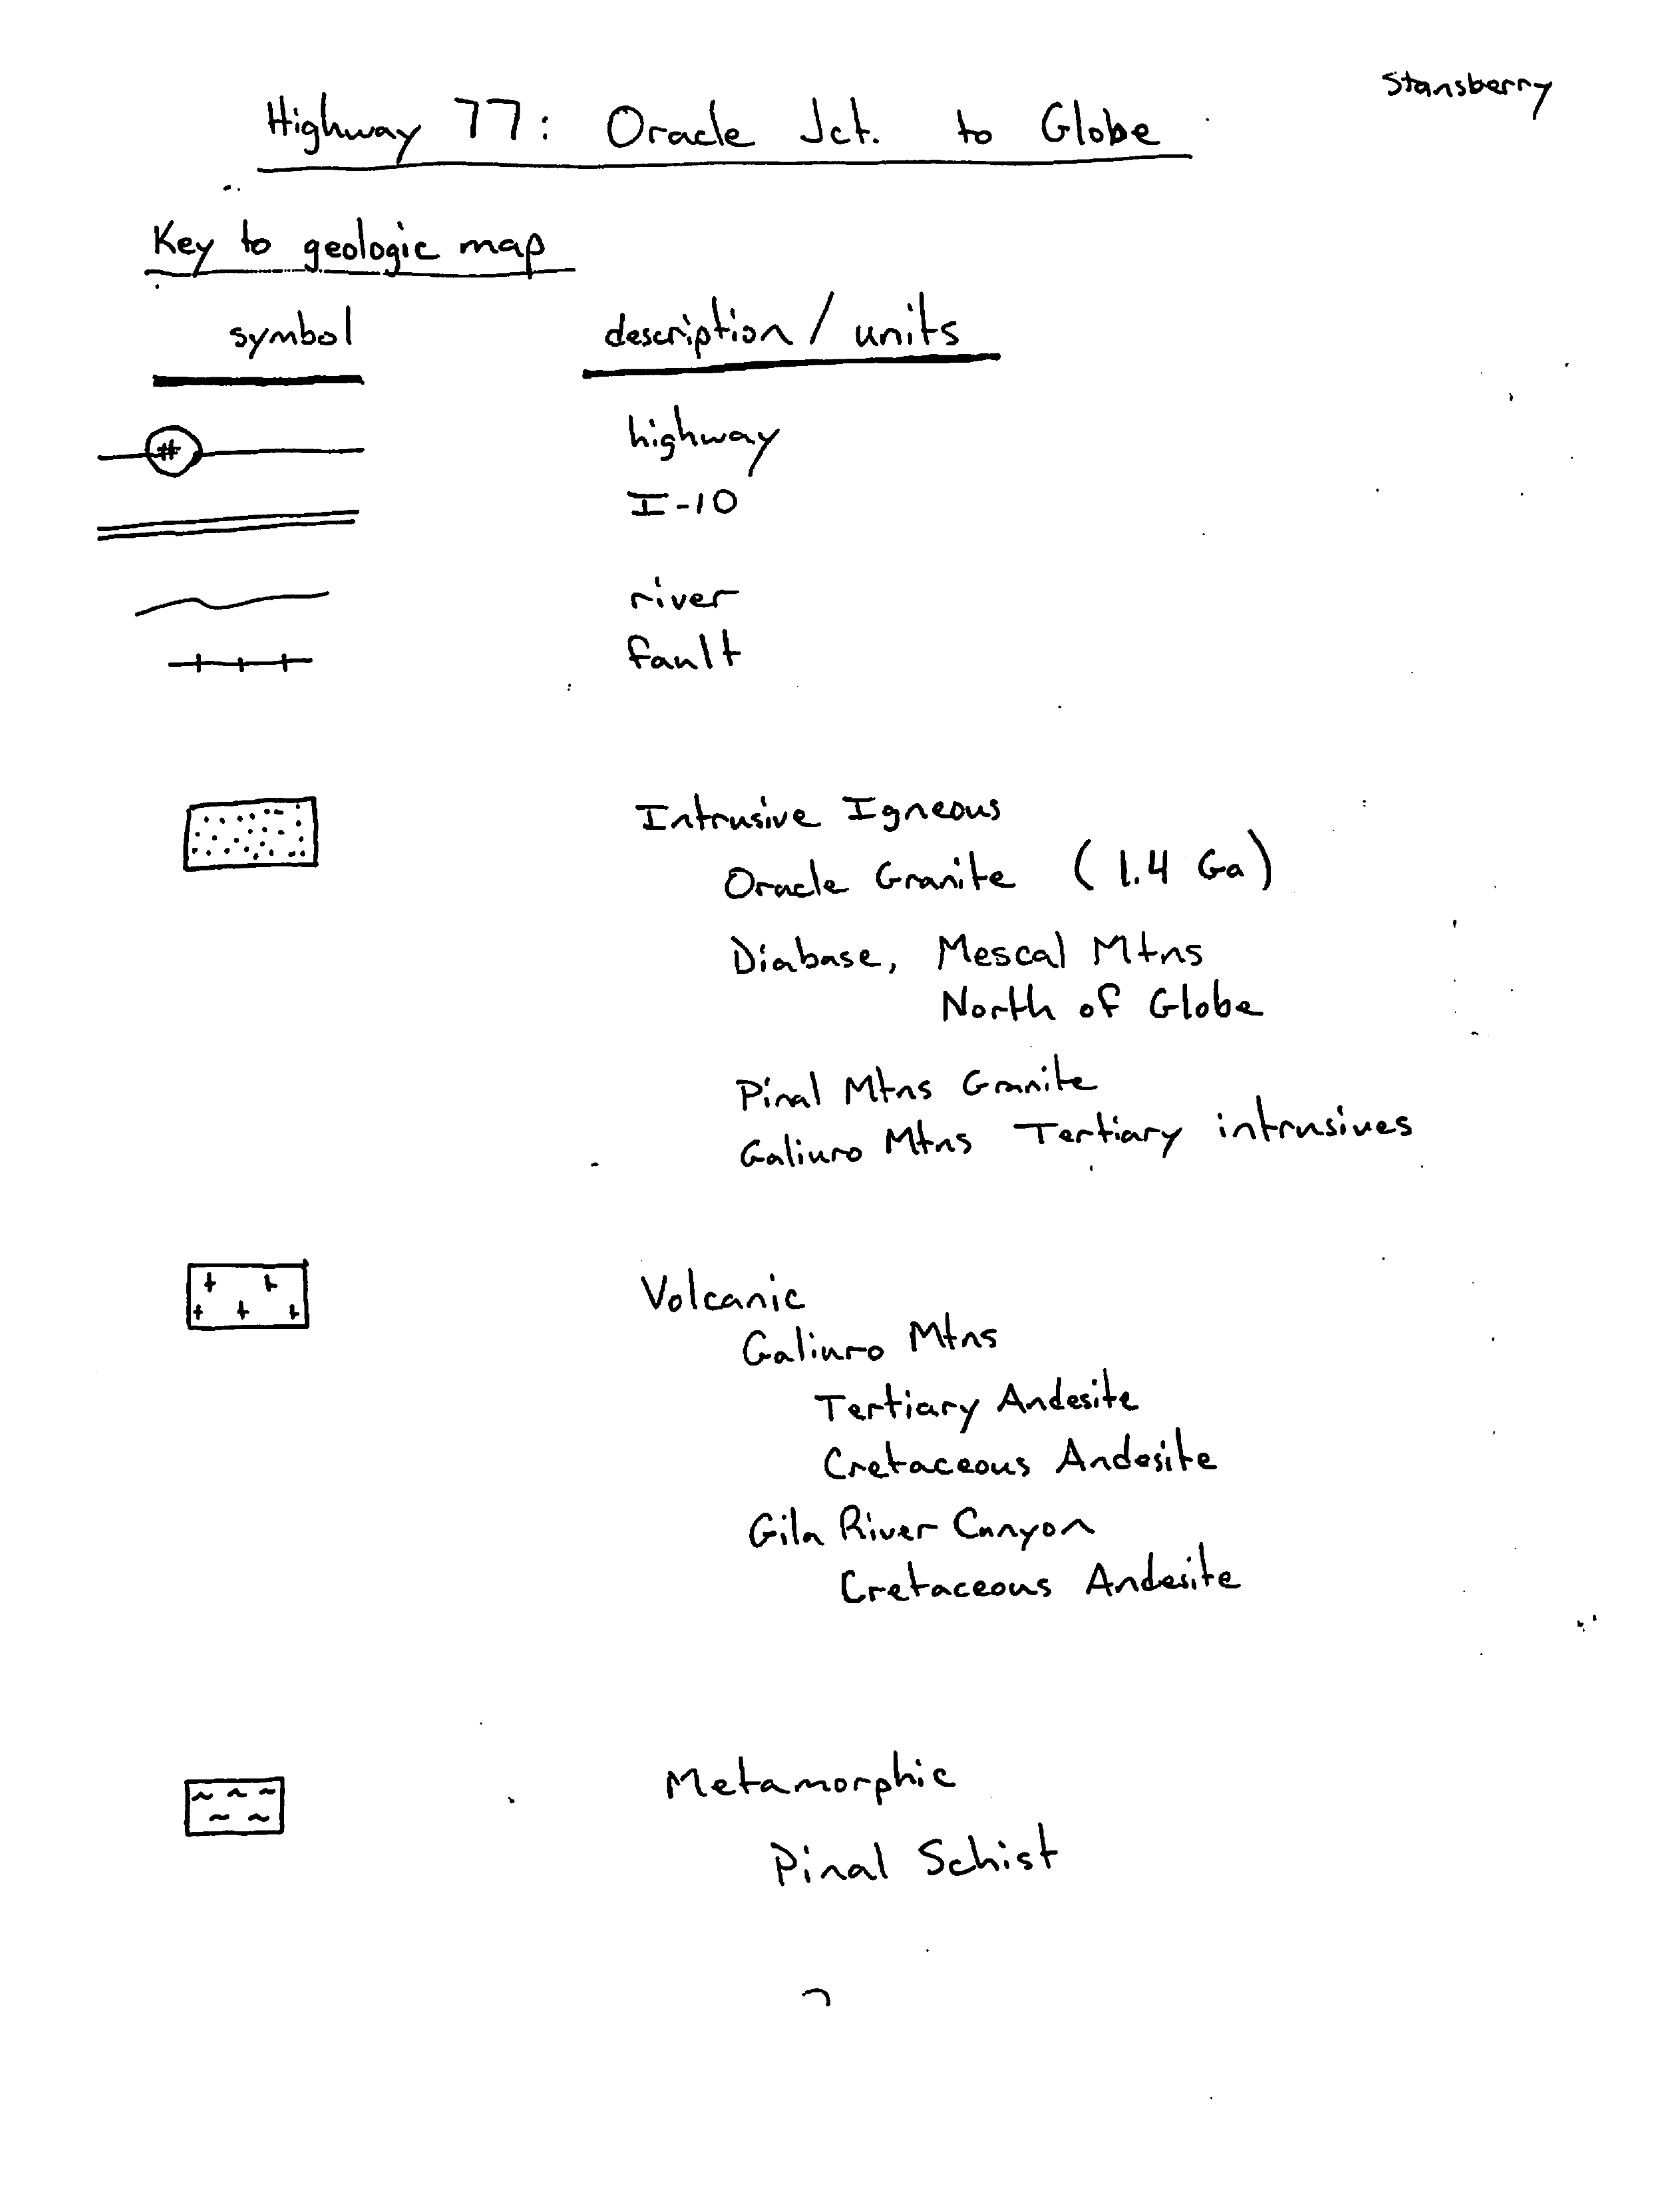 Stansberry
Highway 77: Oracle Jct. to Globe
Key to geologic map
symbol description / units
# highway
I-10
river
fault
Intrusive Igneous
Oracle Granite (1.4 Ga)
Diabase, Mescal Mtns
North of Globe
Pinal Mtns Granite
Galiuro Mtns Tertiary intrusives
Volcanic
Galiuro Mtns
Tertiary Andesite
Cretaceous Andesite
Gila River Canyon
Cretaceous Andesite
Metamorphic
Pinal Schist